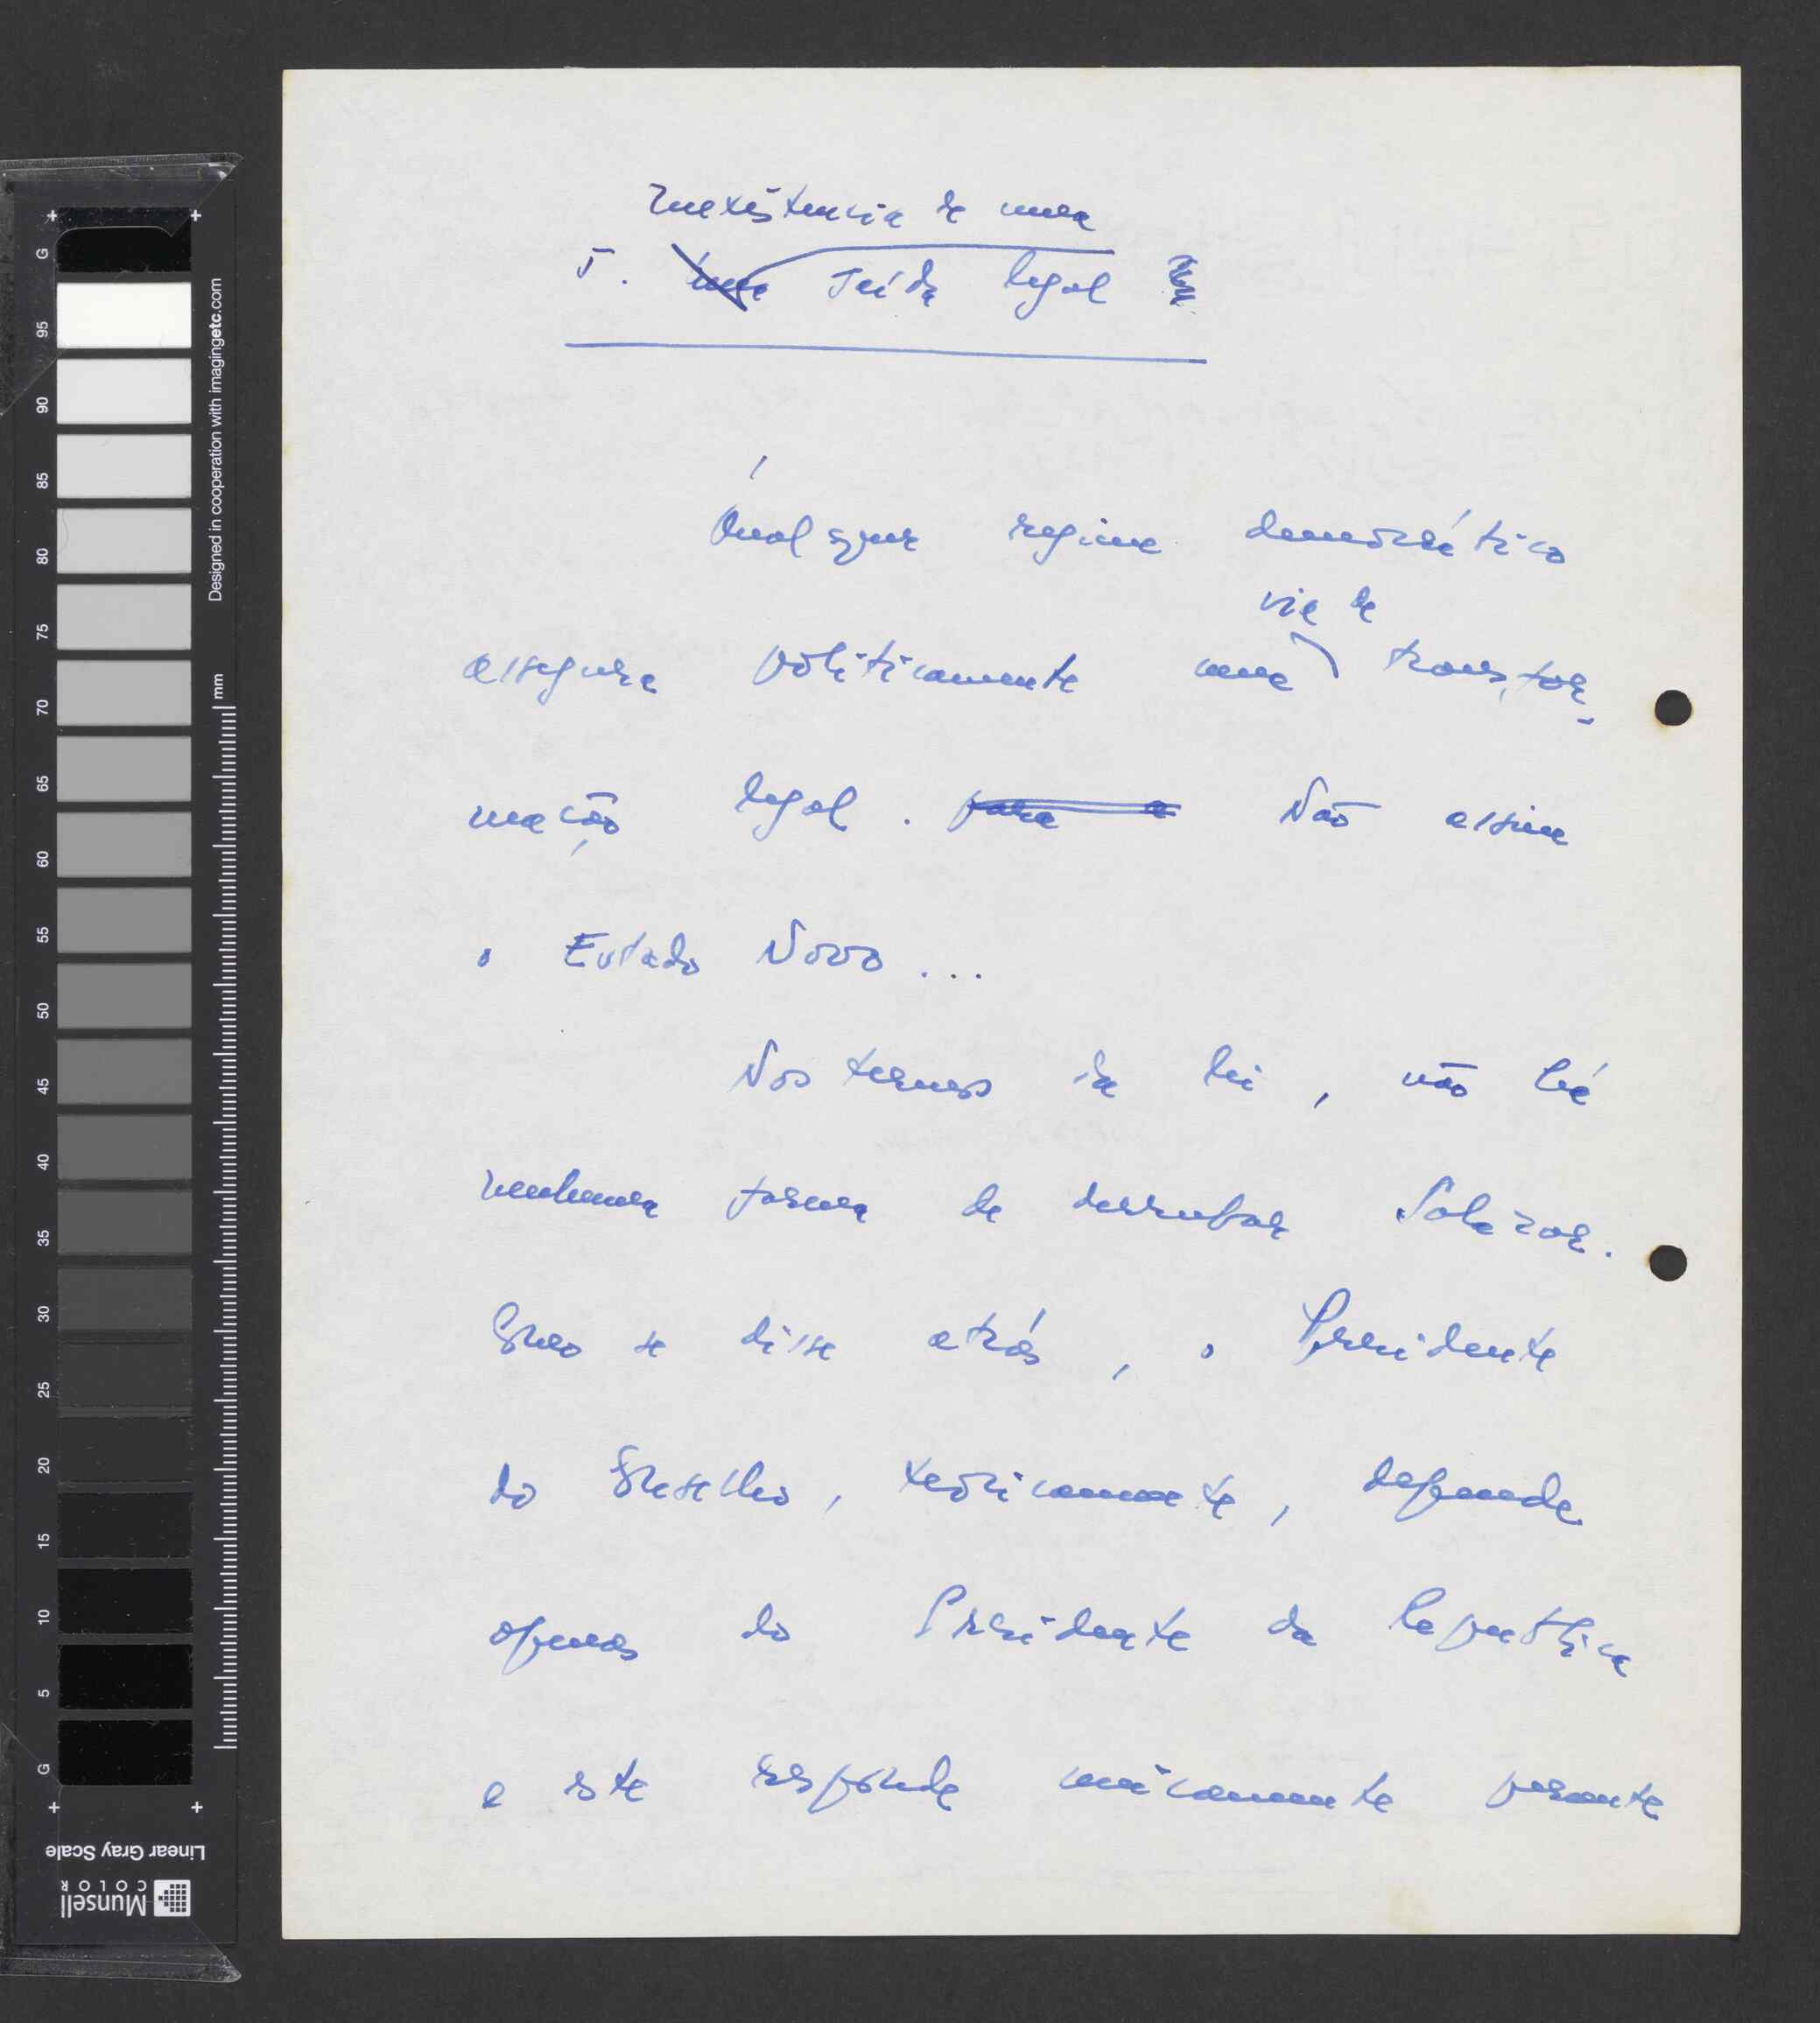 Inexistencia de uma
5. uma saída legal
Qualquer regime democrático
via de
assegura politicamente uma transfor-
mação legal. para a Não assim
o Estado Novo...
Nos termos da lei, não há
nenhuma forma de derrubar Salazar.
Como se disse atrás, o Presidente
do Conselho, teóricamente, depende
apenas do Presidente da Republica
e este responde unicamente perante
G 95 90 85 80 75 70 65 60 55 50 45 40 35 30 25 20 15 10 5 G
Designed in cooperation with imagingetc.com
mm
Linear Gray Scale
Munsell
COLOR